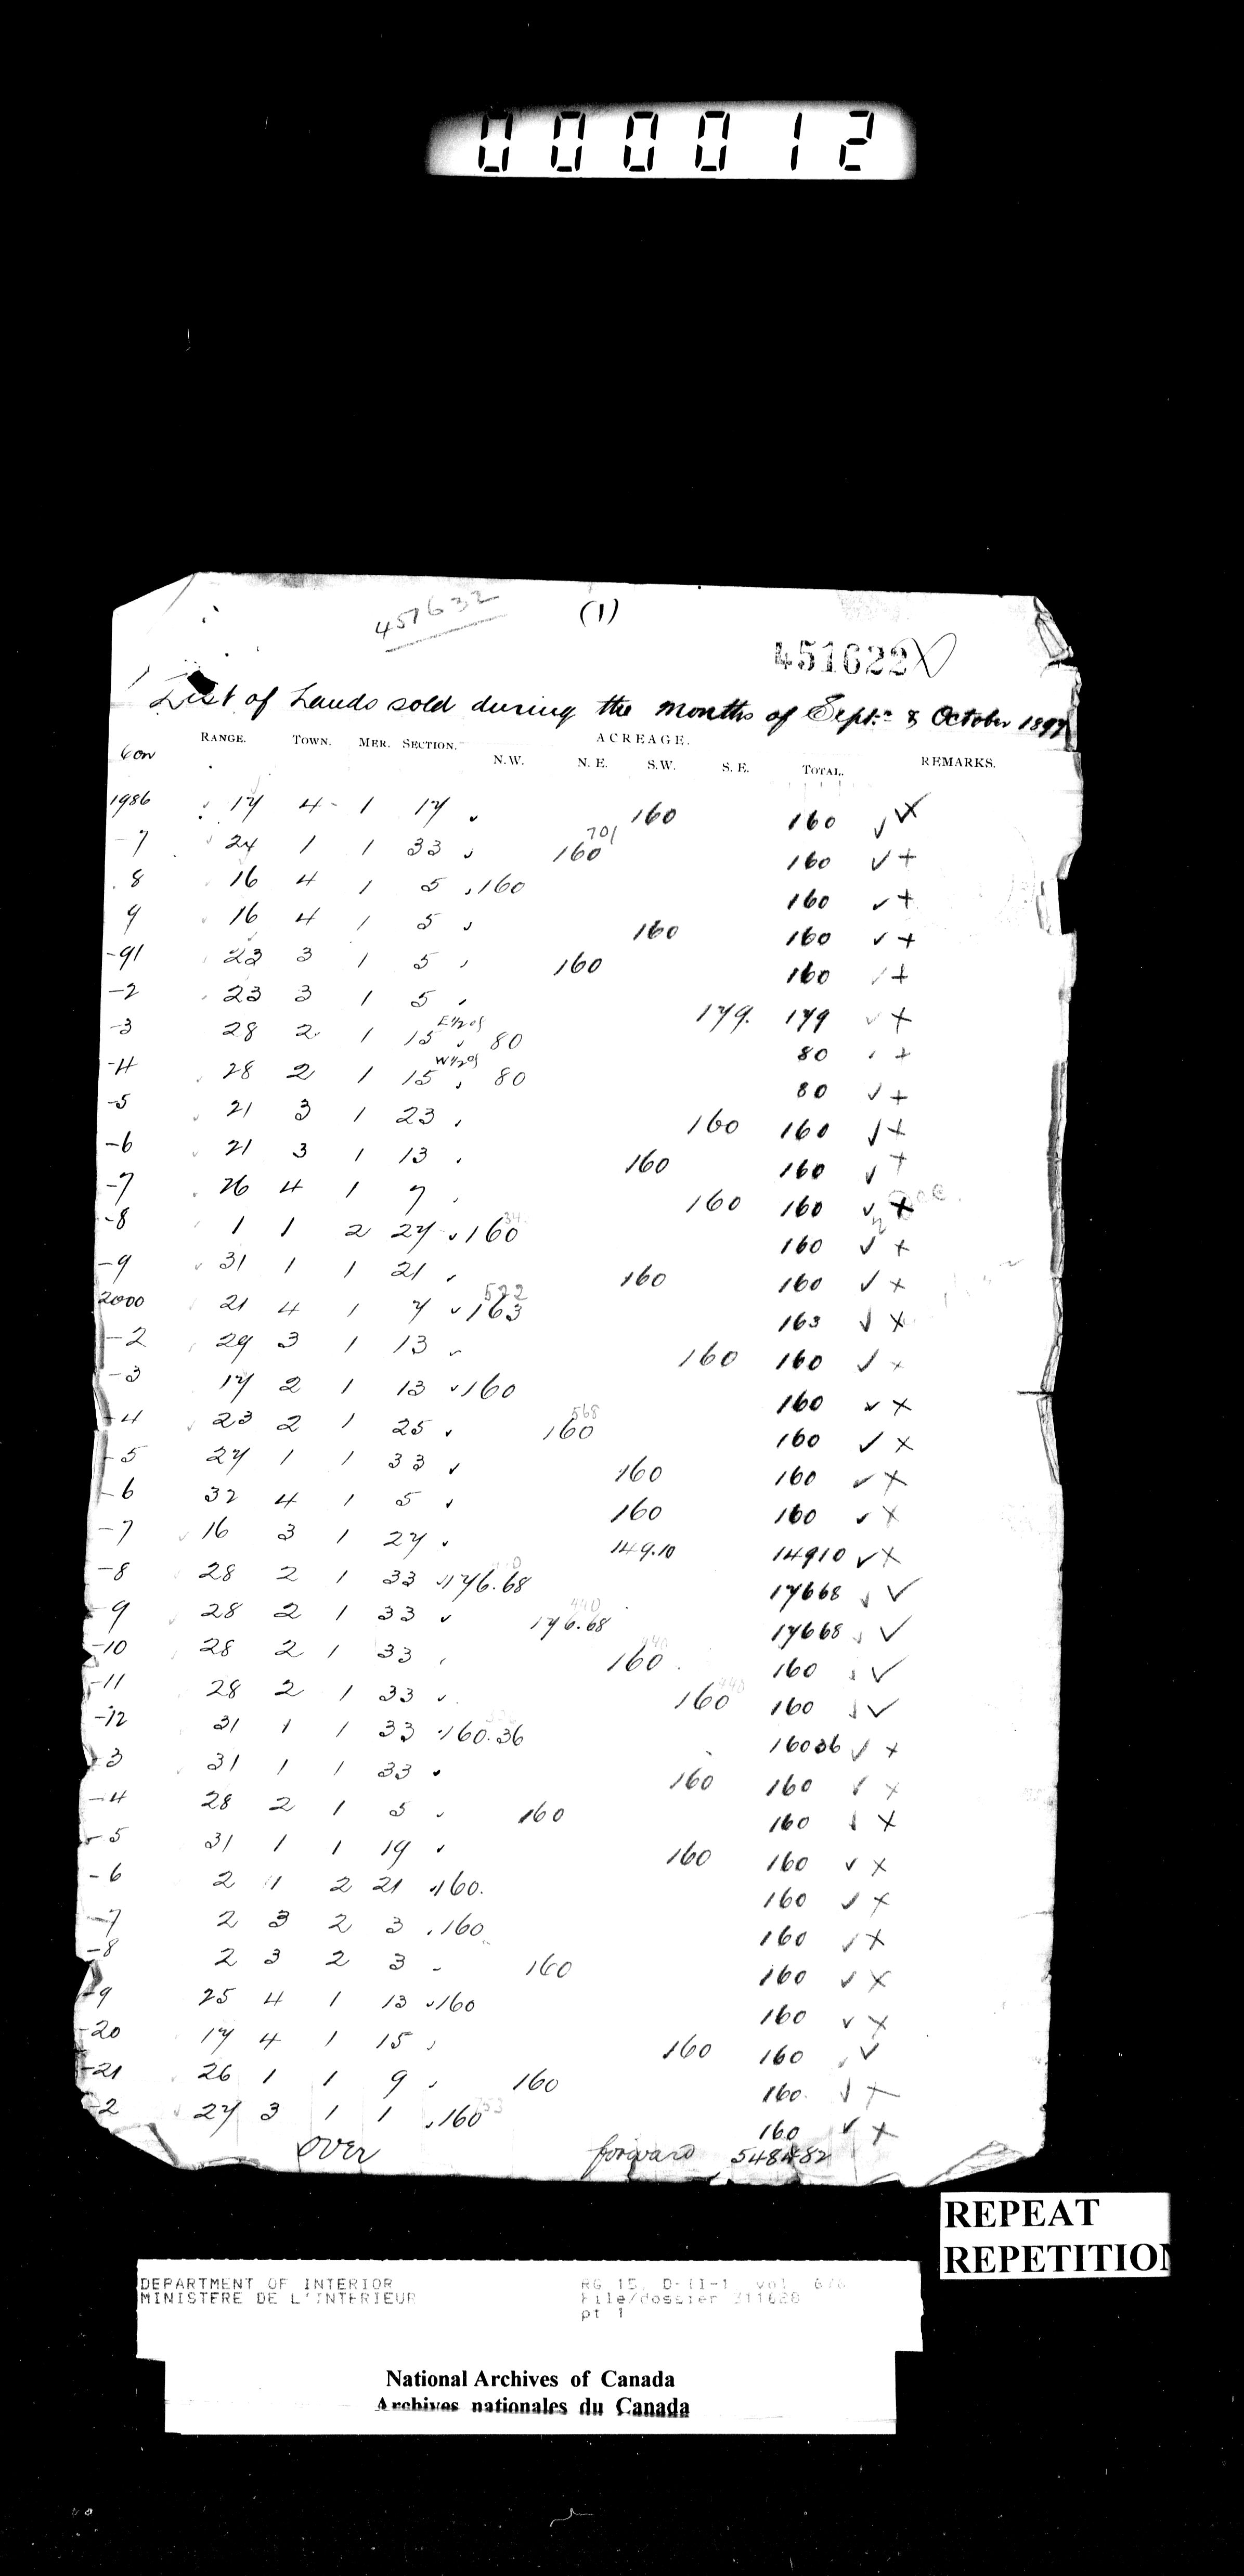 000012
457632
(1)
451622
List of Lands sold during the months of Sept. & October 1897
ACREAGE.
Con RANGE. TOWN. MER. SECTION. N.W. N.E. S.W. S.E. TOTAL. REMARKS.
1986 17 4 1 17 160 160
-7 24 1 1 33 160 701 160
8 16 4 1 5 160 160
9 16 4 1 5 160 160
-91 23 3 1 5 160 160
-2 23 3 1 5 179. 179
-3 28 2 1 15 E½ of 80 80
-4 28 2 1 15 W½ of 80 80
-5 21 3 1 23 160 160
-6 21 3 1 13 160 160
-7 26 4 1 7 160 160
-8 1 1 2 27 160 160
-9 31 1 1 21 160 160
2000 21 4 1 7 163 522 163
-2 29 3 1 13 160 160
-3 17 2 1 13 160 160
-4 23 2 1 25 160 568 160
-5 27 1 1 33 160 160
-6 32 4 1 5 160 160
-7 16 3 1 27 149.10 14910
-8 28 2 1 33 176.68 17668
-9 28 2 1 33 176.68 440 17668
-10 28 2 1 33 160 440 160
-11 28 2 1 33 160 440 160
-12 31 1 1 33 160.36 16036
-3 31 1 1 33 160 160
-4 28 2 1 5 160 160
-5 31 1 1 19 160 160
-6 2 1 2 21 160. 160
-7 2 3 2 3 160 160
-8 2 3 2 3 160 160
-9 25 4 1 13 160 160
-20 17 4 1 15 160 160
-21 26 1 1 9 160 160.
-2 27 3 1 1 160 160
over forward 548482
REPEAT
REPETITION
DEPARTMENT OF INTERIOR RG 15, D-II-1, vol.
MINISTERE DE L'INTERIEUR File/dossier 311628
pt 1
National Archives of Canada
Archives nationales du Canada